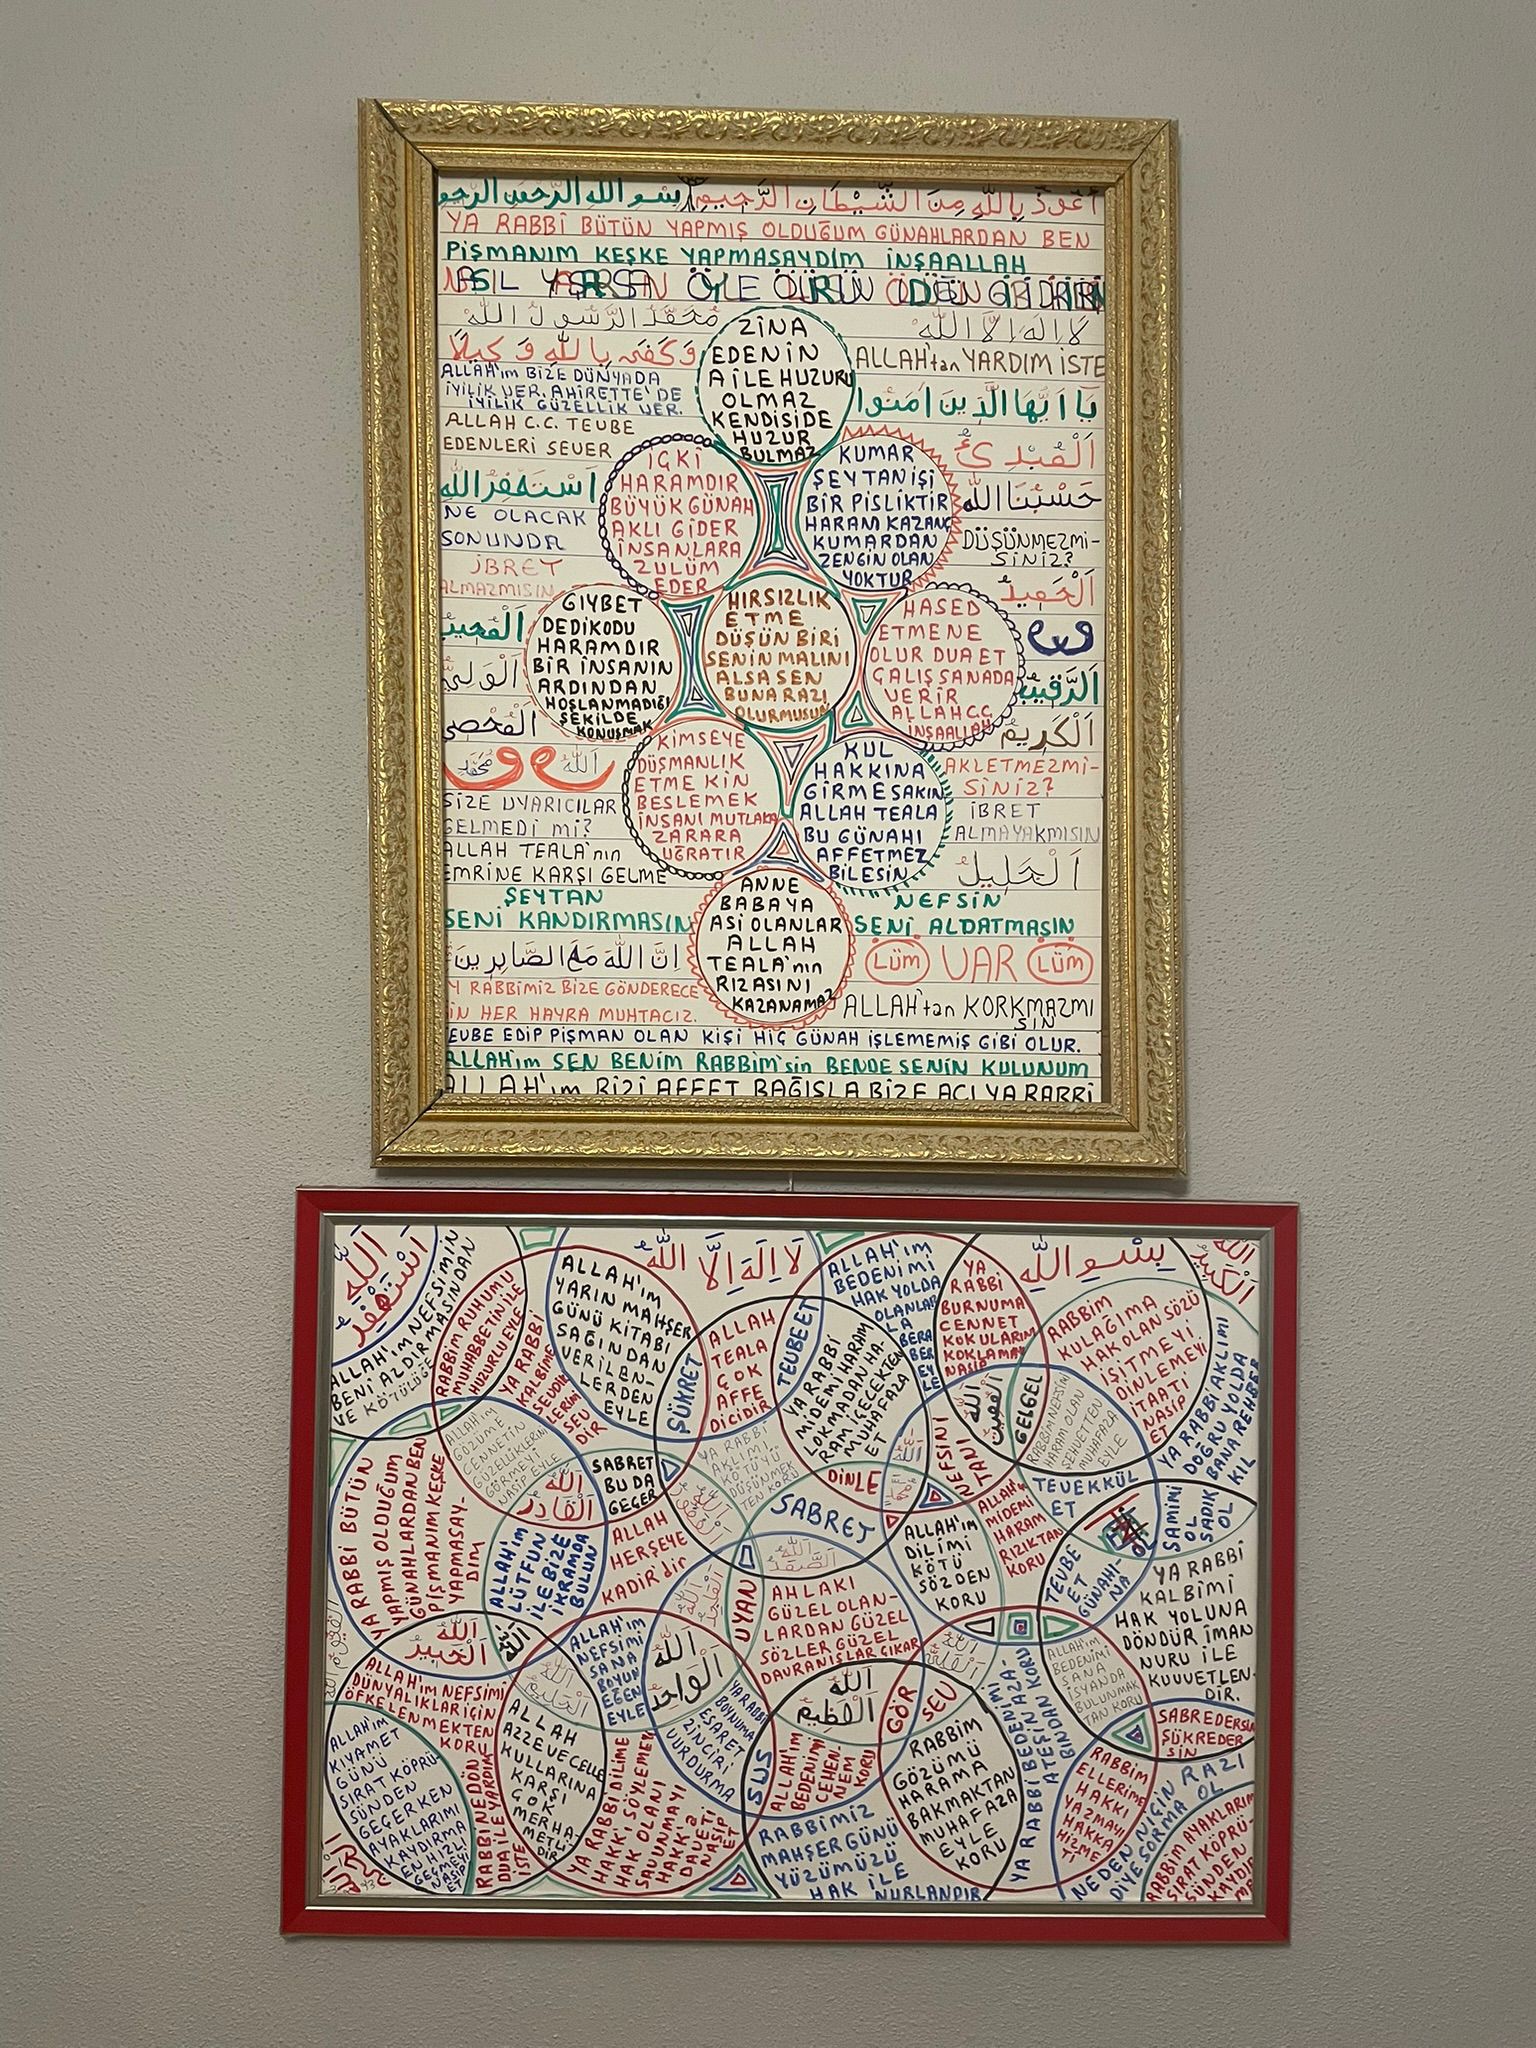 اَعُوذُ بِاللّٰهِ مِنَ الشَّيْطَانِ الرَّجِيمِ بِسْمِ اللّٰهِ الرَّحْمٰنِ الرَّحِيمِ
YA RABBİ BÜTÜN YAPMIŞ OLDUĞUM GÜNAHLARDAN BEN
PİŞMANIM KEŞKE YAPMASAYDIM İNŞAALLAH
NASIL YAŞARSAN ÖYLE ÖLÜRSÜN
مُحَمَّدُ الرَّسُولُ اللّٰه
لَا اِلٰهَ اِلَّا اللّٰه
وَكَفٰى بِاللّٰهِ وَكِيلًا
ALLAH'tan YARDIM İSTE
ALLAH'ım BİZE DÜNYADA
İYİLİK VER. AHİRETTE'DE
İYİLİK GÜZELLİK VER.
يَا اَيُّهَا الَّذِينَ اٰمَنُوا
ALLAH C.C. TEVBE
EDENLERİ SEVER
اَسْتَغْفِرُ اللّٰه
NE OLACAK
SONUNDA
İBRET
ALMAZMISIN
اَلْوَلِيُّ
اَلْمُحْصِى
اللّٰه
مُحَمَّد
SİZE UYARICILAR
GELMEDİ Mİ?
ALLAH TEALA'nın
EMRİNE KARŞI GELME
ŞEYTAN
SENİ KANDIRMASIN
اِنَّ اللّٰهَ مَعَ الصَّابِرِينَ
Y RABBİMİZ BİZE GÖNDERECE
İN HER HAYRA MUHTACIZ.
ZİNA
EDENİN
AİLE HUZURU
OLMAZ
KENDİSİDE
HUZUR
BULMAZ
İÇKİ
HARAMDIR
BÜYÜK GÜNAH
AKLI GİDER
İNSANLARA
ZULÜM
EDER
KUMAR
ŞEYTAN İŞİ
BİR PİSLİKTİR
HARAM KAZANÇ
KUMARDAN
ZENGİN OLAN
YOKTUR
GIYBET
DEDİKODU
HARAMDIR
BİR İNSANIN
ARDINDAN
HOŞLANMADIĞI
ŞEKİLDE
KONUŞMAK
HIRSIZLIK
ETME
DÜŞÜN BİRİ
SENİN MALINI
ALSA SEN
BUNA RAZI
OLURMUSUN
HASED
ETME NE
OLUR DUA ET
ÇALIŞ SANADA
VERİR
ALLAH C.C
İNŞAALLAH
KİMSEYE
DÜŞMANLIK
ETME KİN
BESLEMEK
İNSANI MUTLAKA
ZARARA
UĞRATIR
KUL
HAKKINA
GİRME SAKIN
ALLAH TEALA
BU GÜNAHI
AFFETMEZ
BİLESİN.
ANNE
BABAYA
ASİ OLANLAR
ALLAH
TEALA'nın
RIZASINI
KAZANAMAZ
اَلْمُبْدِئُ
حَسْبُنَا اللّٰه
DÜŞÜNMEZMİ-
SİNİZ?
اَلْحَمِيدُ
اَلرَّقِيبُ
اَلْكَرِيمُ
AKLETMEZMİ-
SİNİZ?
İBRET
ALMAYAKMISIN
اَلْجَلِيلُ
NEFSİN
SENİ ALDATMASIN
ÖLÜM VAR ÖLÜM
ALLAH'tan KORKMAZMI
SIN
EVBE EDİP PİŞMAN OLAN KİŞİ HİÇ GÜNAH İŞLEMEMİŞ GİBİ OLUR.
ALLAH'ım SEN BENİM RABBİM'sin BENDE SENİN KULUNUM
ALLAH'ım BİZİ AFFET BAĞIŞLA BİZE ACI YA RABBİ
اَسْتَغْفِرُ اللّٰه
ALLAH'ım NEFSİMİN
BENİ AZDIRMASINDAN
VE KÖTÜLÜĞE
RABBİM RUHUMU
MUHABBETİN İLE
HUZURLU EYLE
YA RABBİ
KALBİME
SEVDİK
LERİNİ
SEV
DİR
ALLAH'ım
YARIN MAHŞER
GÜNÜ KİTABI
SAĞINDAN
VERİLEN-
LERDEN
EYLE
لَا اِلٰهَ اِلَّا اللّٰهُ
ŞÜKRET
ALLAH
TEALA
ÇOK
AFFE
DİCİDİR
TEVBE ET
ALLAH'ım
BEDENİMİ
HAK YOLDA
OLANLAR
LA
BERA
BER
EYLE
YA RABBİ
MİDEMİ HARAM
LOKMADAN HA-
RAM İÇECEKTEN
MUHAFAZA
ET
YA
RABBİ
BURNUMA
CENNET
KOKULARIN
KOKLAMAYI
NASİP
بِسْمِ اللّٰهِ
اَللّٰه
اَلْكَبِيرُ
RABBİM
KULAĞIMA
HAK OLAN SÖZÜ
İŞİTMEYİ
DİNLEMEYİ
İTAATI
NASİP
ET
YA RABBİ AKLIMI
DOĞRU YOLDA
BANA REHBER
KIL
GEL GEL
RABBİM NEFSİMİ
HARAM OLAN
ŞEHVETTEN
MUHAFAZA
EYLE
TEVEKKÜL
ET
NEFSİNİ
TANI
DİNLE
SABRET
YA RABBİ
AKLIMI
KÖTÜYÜ
DÜŞÜNMEK
TEN KORU
SABRET
BU DA
GEÇER
ALLAH'ım
GÖZÜME
CENNETİN
GÜZELLİKLERİNİ
GÖRMEYİ
NASİP EYLE
اَللّٰه
اَلْقَادِرُ
YA RABBİ BÜTÜN
YAPMIŞ OLDUĞUM
GÜNAHLARDAN BEN
PİŞMANIM KEŞKE
YAPMASAY-
DIM
ALLAH'ım
LÜTFUN
İLE BİZE
İKRAMDA
BULUN
ALLAH
HERŞEYE
KADİR'dir
UYAN
AHLAKI
GÜZEL OLAN-
LARDAN GÜZEL
SÖZLER GÜZEL
DAVRANIŞLAR ÇIKAR
ALLAH'ım
DİLİMİ
KÖTÜ
SÖZDEN
KORU
ALLAH'ım
MİDEMİ
HARAM
RIZIKTAN
KORU
TEVBE
ET
GÜNAHI-
NA
SAMİMİ
OL
SADIK
OL
YA RABBİ
KALBİMİ
HAK YOLUNA
DÖNDÜR İMAN
NURU İLE
KUVVETLEN-
DİR.
ALLAH'ım
BEDENİMİ
SANA
İSYANDA
BULUNMAK
TAN KORU
SABREDERSİN
ŞÜKREDER
SİN
اَللّٰه
اَلْخَبِيرُ
اَللّٰه
ALLAH'ım NEFSİMİ
DÜNYALIKLAR İÇİN
ÖFKELENMEKTEN
KORU
ALLAH'ım
KIYAMET
GÜNÜ
SIRAT KÖPRÜ-
SÜNDEN
GEÇERKEN
AYAKLARIMI
KAYDIRMA
EN HIZLI
GEÇMEYİ
NASİP
ET
RABBİNE DÖN
DUA İLE YARDIM
İSTE
اَللّٰه
اَلْحَلِيمُ
ALLAH
AZZE VE CELLE
KULLARINA
KARŞI
ÇOK
MERHA-
METLİ
DİR
ALLAH'ım
NEFSİMİ
SANA
BOYUN
EĞEN
EYLE
اَللّٰه
اَلْوَاحِدُ
YA RABBİ
BOYNUMA
ESARET
ZİNCİRİ
VURDURMA
YA RABBİ DİLİME
HAKK'I SÖYLEMEK
HAK OLANI
SAVUNMAYI
HAKK'a
DAVETİ
NASİP
ET
SUS
اَللّٰه
اَلْعَظِيمُ
ALLAH'ım
BEDENİMİ
CEHEN-
NEM
KORU
GÖR
SEV
RABBİM
GÖZÜMÜ
HARAMA
BAKMAKTAN
MUHAFAZA
EYLE
KORU
RABBİMİZ
MAHŞER GÜNÜ
YÜZÜMÜZÜ
HAK İLE
NURLANDIR
YA RABBİ BEDENİMİ
AZA-
ATEŞİN
BINDAN KORU
RABBİM
ELLERİME
HAKKI
YAZMAYI
HAKKA
HİZME
Tİ
NEDEN NİÇİN RAZI
DİYE SORMA OL
RABBİM AYAKLARIM
SIRAT KÖPRÜ-
SÜNDEN
KAYDIR
MA